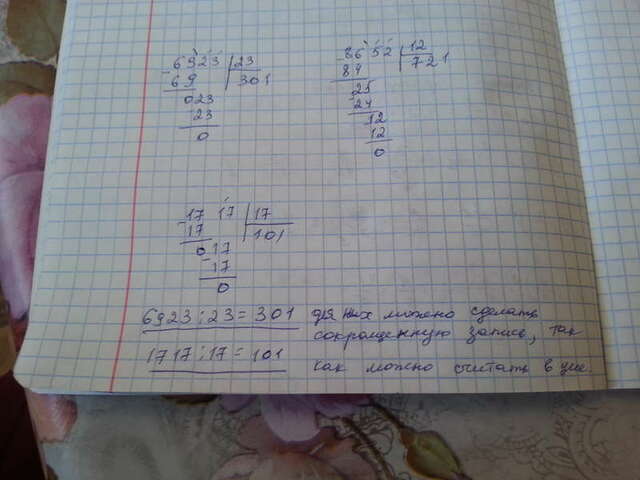 6923 | 23
69 | 301
023
23
0
8652 | 12
84 | 721
25
24
12
12
0
1717 | 17
17 | 101
017
17
0
6923:23=301 для них можно сделать
сокращенную запись, так
1717:17=101 как можно считать в уме.